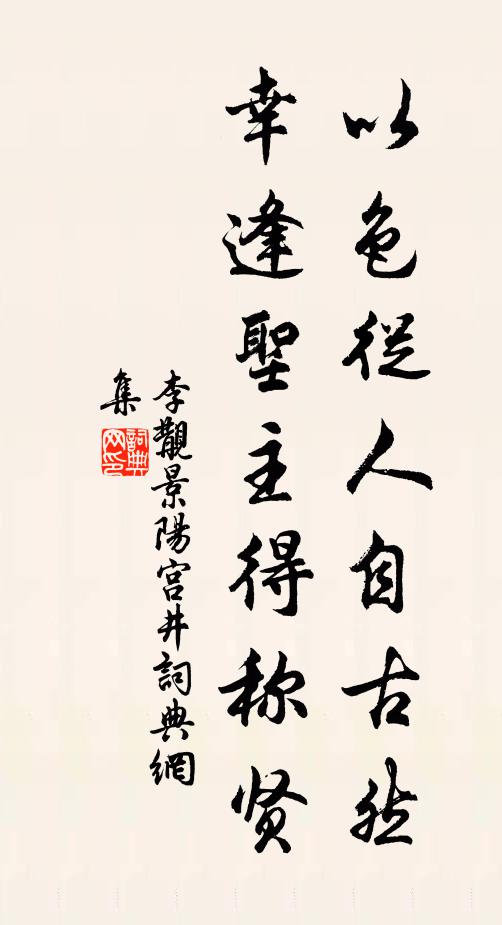 以色從人自古然
幸逢聖主得称贤
李觀景陽宮井詞典網
集
詞典
网印